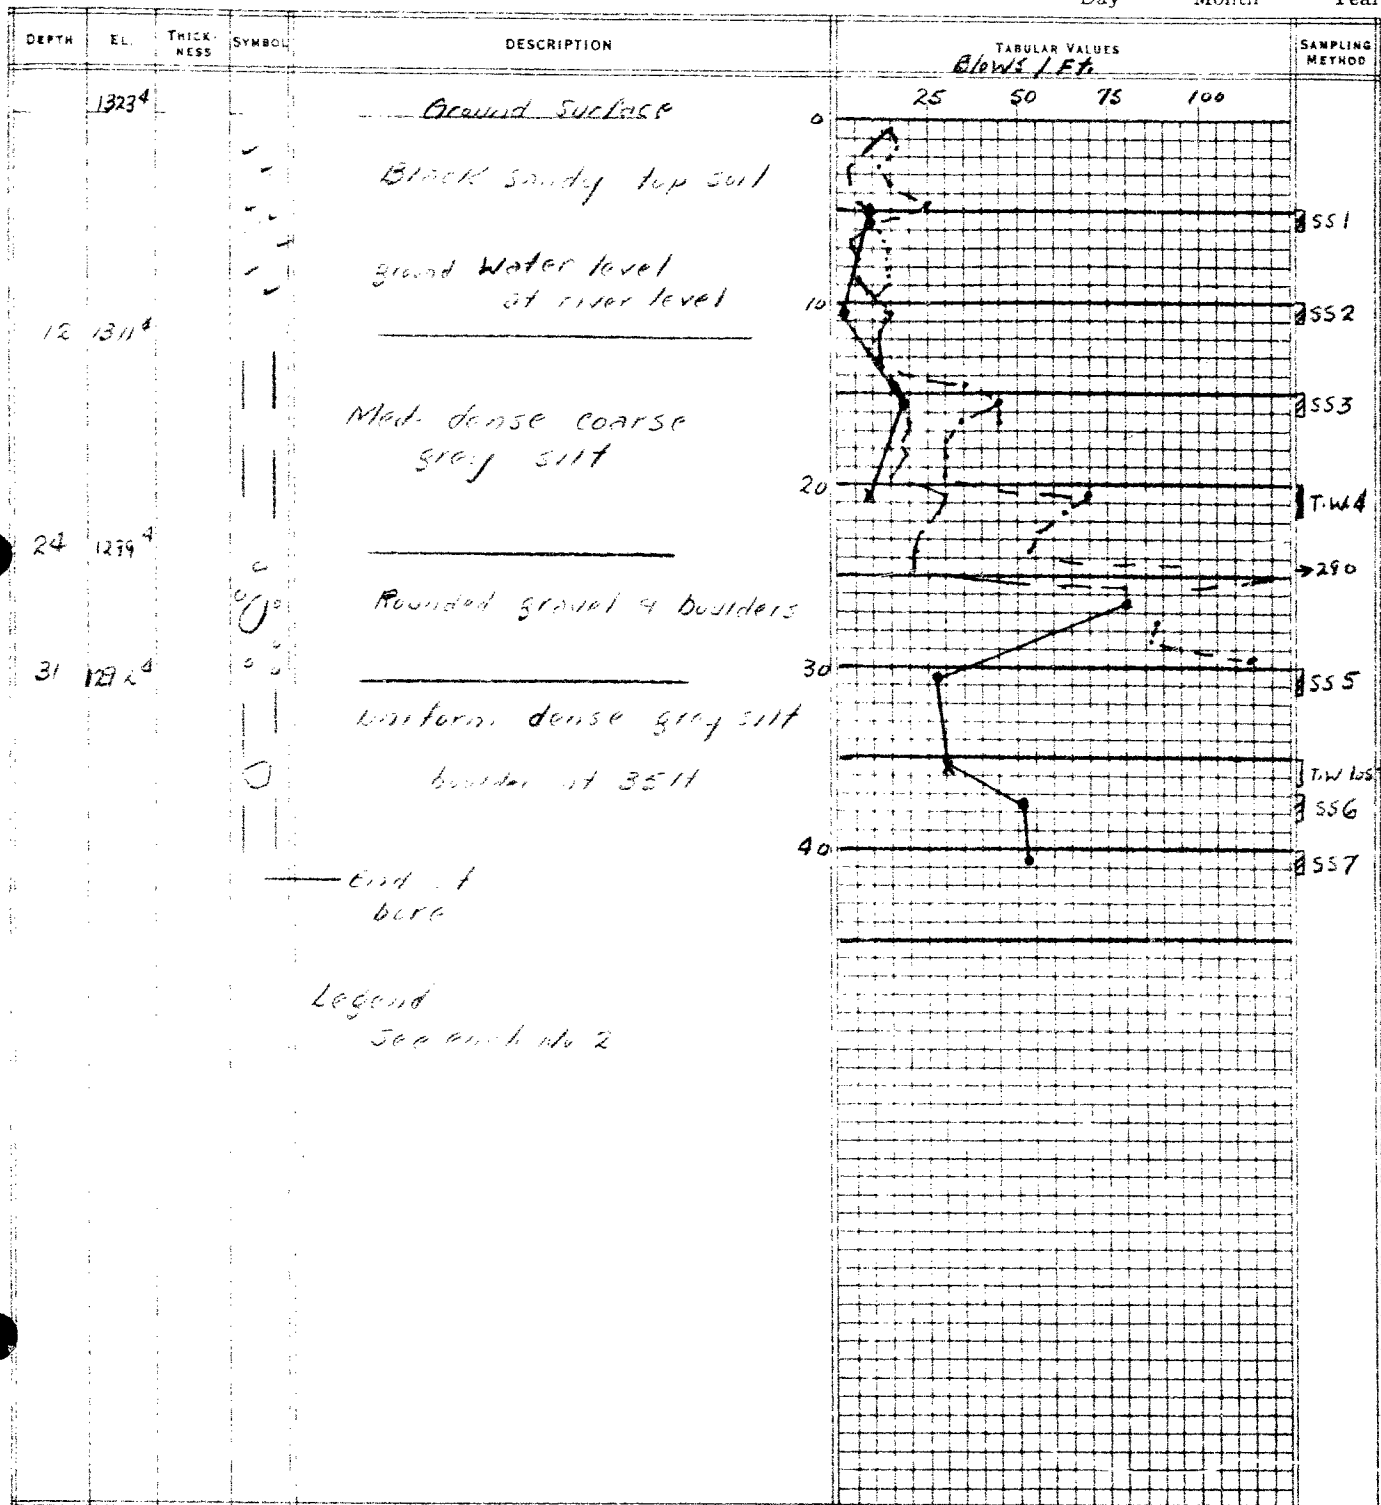 Day Month Year
DEPTH EL. THICK-NESS SYMBOL DESCRIPTION TABULAR VALUES SAMPLING METHOD
Blows / Ft.
25 50 75 100
1323⁴ Ground Surface
0
Black sandy top soil
SS1
ground Water level
at river level
10 SS2
12 1311⁴
SS3
Med. dense coarse
grey silt
20 T.W.4
24 1299⁴
→290
Rounded gravel & boulders
31 1292⁴ 30 SS5
Uniform dense grey silt
boulder at 35 ft
T.W. los
SS6
40 SS7
End of
bore
Legend
See encl. No 2